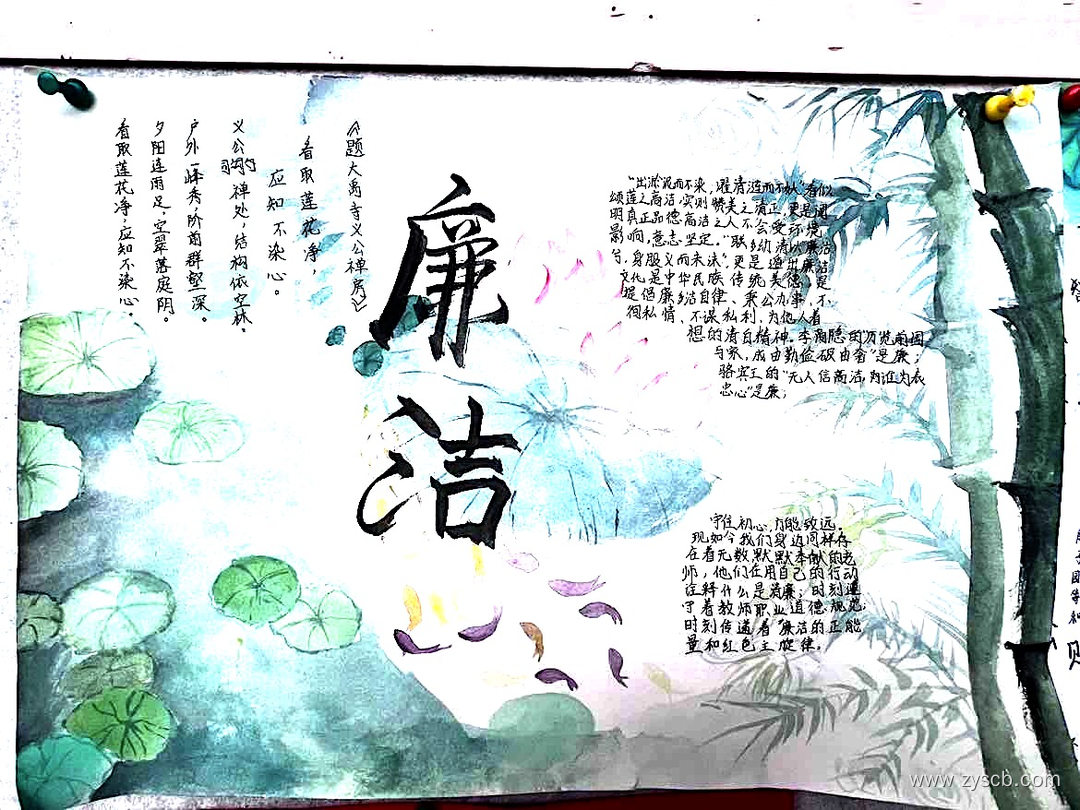 《题大禹寺义公禅房》
看取莲花净，
应知不染心。
义公禅处，结构依空林。
户外一峰秀，阶前群壑深。
夕阳连雨足，空翠落庭阴。
看取莲花净，应知不染心。
廉洁
"出淤泥而不染，濯清涟而不妖"看似
颂莲之高洁，实则赞美之清正，更是阐
明真正品德高洁之人不会受环境
影响，意志坚定。"幼清以廉洁
兮，身服义而未沫"更是道出廉洁
文化是中华民族传统美德，是
提倡廉洁自律、秉公办事，不
徇私情、不谋私利，为他人着
想的清白精神。李商隐的"历览前国
与家，成由勤俭破由奢"是廉；
骆宾王的"无人信高洁，为谁为表
忠心"是廉；
守住初心，方能致远。
现如今我们身边同样存
在着无数默默奉献的老
师，他们在用自己的行动
诠释什么是清廉；时刻遵
守着教师职业道德规范；
时刻传递着"廉洁的正能
量和红色主旋律。
www.zyscb.com